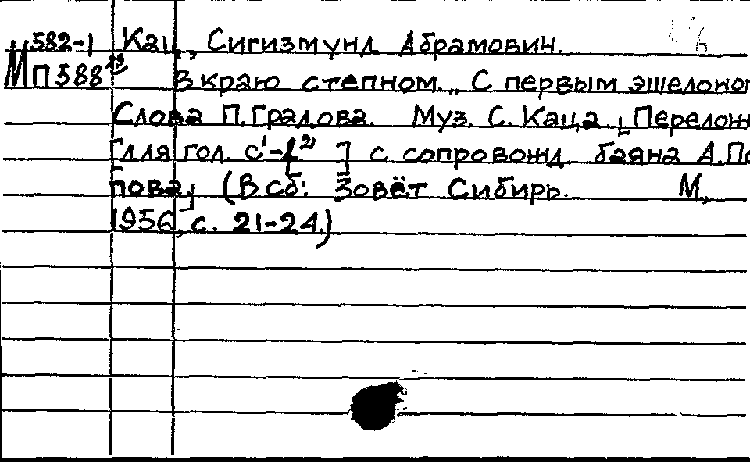 582-1 Кац, Сигизмунд Абрамович.
МП588 В краю степном... С первым эшелоном
Слова П. Градова. Муз. С. Каца. Перелож
[для гол. c¹-f²] с сопровожд. баяна А. По
пова] (В сб: Зовёт Сибирь. М.,
1956, с. 21-24.)